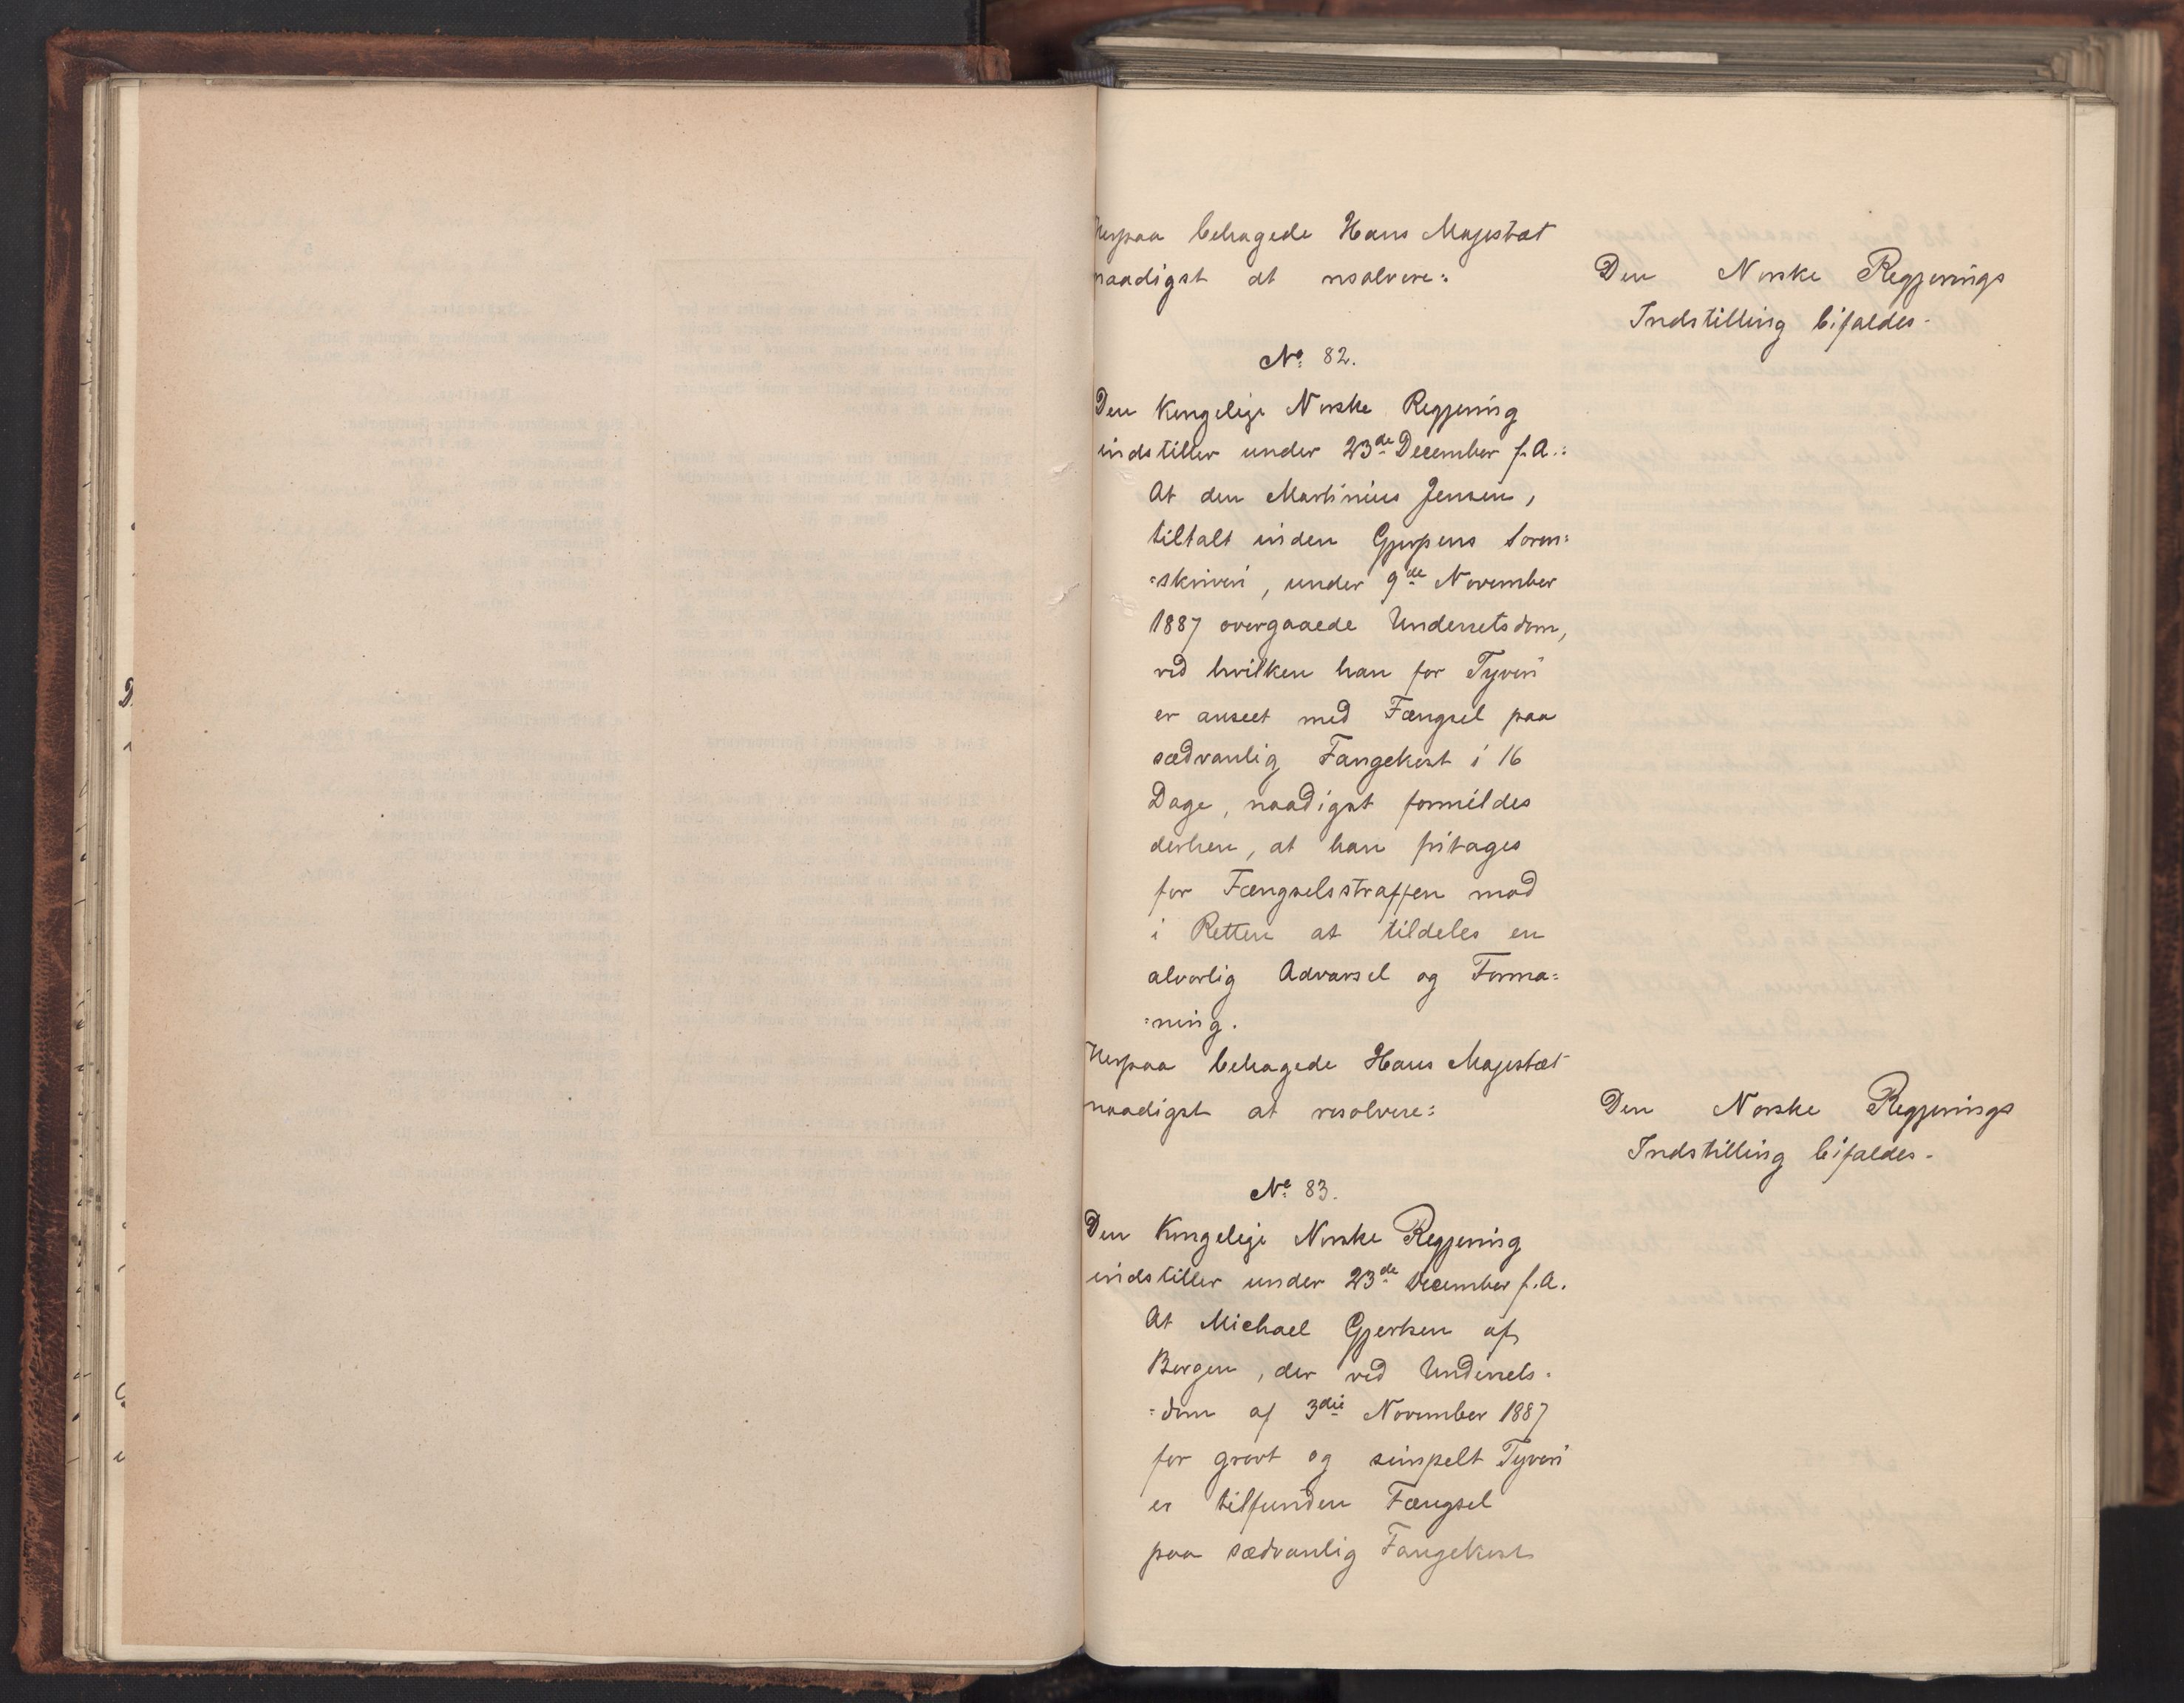 Herpaa behagede Hans Majestæt
naadigst at resolvere:
Den Norske Regjerings
Indstilling bifaldes.
No. 82.
Den Kongelige Norske Regjering
indstiller under 23de December f.A.:
At den Martinius Jensen,
tiltalt inden Gjerpens Soren=
=skriveri, under 9de November
1887 overgaaede Underretsdom,
ved hvilken han for Tyveri
er anseet med Fængsel paa
sædvanlig Fangekost i 16
Dage, naadigst formildes
derhen, at han fritages
for Fængselsstraffen mod
i Retten at tildeles en
alvorlig Advarsel og Forma=
=ning.
Herpaa behagede Hans Majestæt
naadigst at resolvere:
Den Norske Regjerings
Indstilling bifaldes.
No. 83.
Den Kongelige Norske Regjering
indstiller under 23de December f.A.
At Michael Gjertsen af
Bergen, der ved Underrets=
=dom af 3die November 1887
for grovt og simpelt Tyveri
er tilfunden Fængsel
paa sædvanlig Fangekost